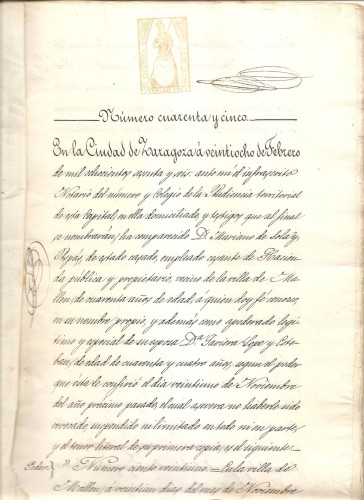 Número cuarenta y cinco
En la Ciudad de Zaragoza á veintiocho de Febrero
de mil ochocientos y seis: ante mi el infrascrito
Notario del número y Colegio de la Audiencia territorial
de esta Capital, en ella domiciliado y testigos que al final
se nombrarán, ha comparecido D. Mariano de
de estado casado, empleado cesante de Hacien-
da pública y propietario, vecino de la villa de Ma-
llen, de cuarenta años de edad, á quien doy fé conozco,
en su nombre propio, y además como apoderado legí-
timo y especial de su esposa Dª y Este-
ban, de edad de cuarenta y cuatro años, segun el poder
que esta le confirió el dia veintiuno de Noviembre
del año próximo pasado, el cual asevera no haberle sido
revocado, suspendido ni limitado en todo ni en parte,
y el tenor literal de su primera copia, es el siguiente:
Poder " Número ciento veintiuno = En la villa de
Mallen, á veintiun dias del mes de Noviembre